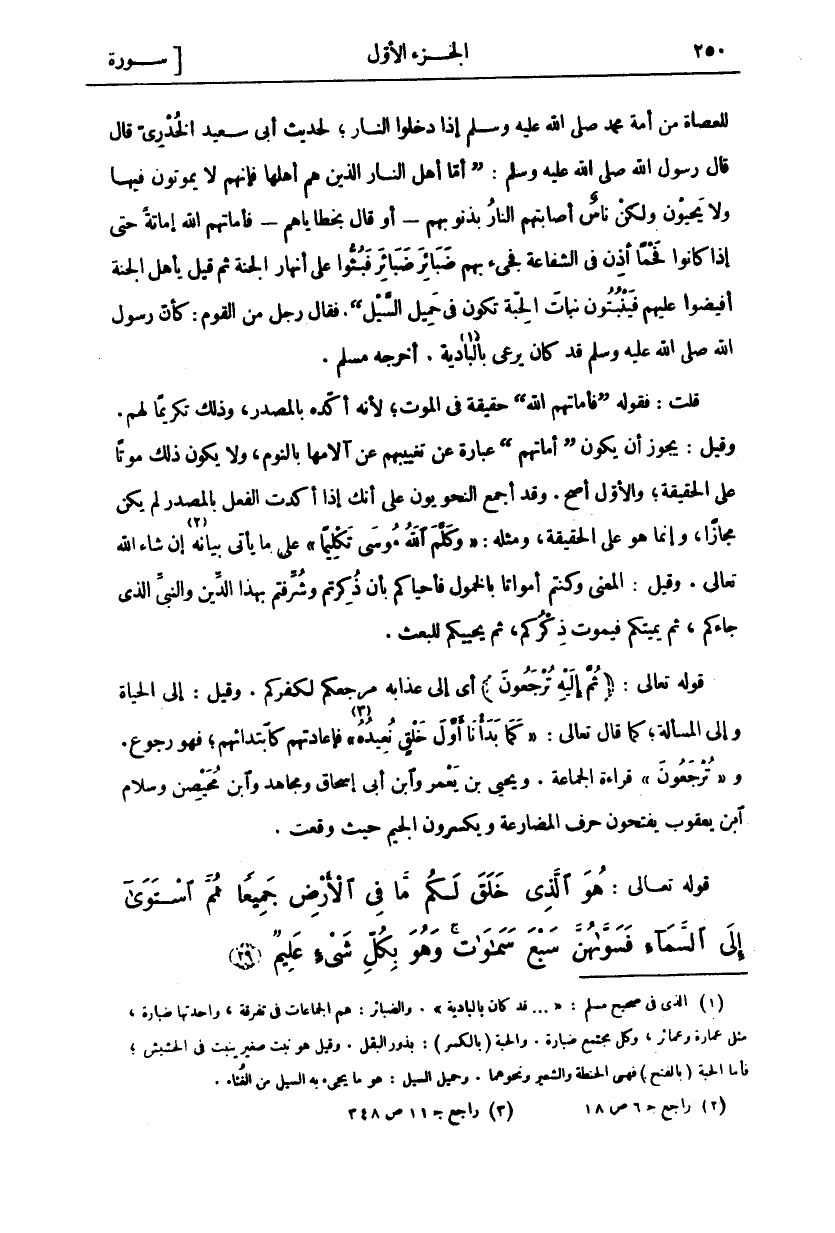 ٢٥٠ الجـــزء الأوّل [ ســـورة
للعصاة من أمة محمد صلى الله عليه وسلم إذا دخلوا النار ؛ لحديث أبى سعيد الخُدْرِىّ قال
قال رسول الله صلى الله عليه وسلم : ”أمّا أهل النار الذين هم أهلها فإنهم لا يموتون فيها
ولا يَحيَوْن ولكنْ ناسٌ أصابتهم النارُ بذنوبهم — أو قال بخطاياهم — فأماتهم الله إماتةً حتى
إذا كانوا فَحْمًا أذِن فى الشفاعة فجىء بهم ضَبَائِرَ ضَبَائِرَ فَبُثُّوا على أنهار الجنة ثم قيل يأهل الجنة
أفيضوا عليهم فَيَنْبُتُون نباتَ الحِبّة تكون فى حَمِيل السَّيْل“. فقال رجل من القوم : كأنّ رسول
الله صلى الله عليه وسلم قد كان يرعى بالبادية (١) . أخرجه مسلم .
قلت : فقوله ”فأماتهم الله“ حقيقة فى الموت؛ لأنه أكّده بالمصدر، وذلك تكريمًا لهم.
وقيل : يجوز أن يكون ”أماتهم“ عبارة عن تغييبهم عن آلامها بالنوم، ولا يكون ذلك موتًا
على الحقيقة؛ والأوّل أصح . وقد أجمع النحويون على أنك إذا أكدت الفعل بالمصدر لم يكن
مجازًا، وإنما هو على الحقيقة، ومثله : « وَكَلَّمَ ٱللَّهُ مُوسَى تَكْلِيمًا » على ما يأتى بيانه (٢) إن شاء الله
تعالى . وقيل : المعنى وكنتم أمواتا بالخمول فأحياكم بأن ذُكِرتم وشُرِّفتم بهذا الدِّين والنبىِّ الذى
جاءكم ، ثم يميتكم فيموت ذِكْرُكم، ثم يحييكم للبعث .
قوله تعالى : ﴿ ثُمَّ إِلَيْهِ تُرْجَعُونَ ﴾ أى إلى عذابه مرجعكم لكفركم . وقيل : إلى الحياة
وإلى المسألة؛ كما قال تعالى : « كَمَا بَدَأْنَا أَوَّلَ خَلْقٍ نُعِيدُهُ (٣) » فإعادتهم كآبتدائهم؛ فهو رجوع.
و « تُرْجَعُونَ » قراءة الجماعة . ويحيى بن يَعْمر وٱبن أبى إسحاق ومجاهد وٱبن مُحَيْصِن وسلام
ٱبن يعقوب يفتحون حرف المضارعة ويكسرون الجيم حيث وقعت .
قوله تعـالى : هُوَ ٱلَّذِى خَلَقَ لَـكُم مَّا فِى ٱلْأَرْضِ جَمِيعًا ثُمَّ ٱسْتَوَىٰٓ
إِلَى ٱلسَّمَآءِ فَسَوَّىٰهُنَّ سَبْعَ سَمَـٰوَٰتٍ ۚ وَهُوَ بِكُلِّ شَىْءٍ عَلِيمٌ (٢٩)
(١) الذى فى صحيح مسلم : « ... قد كان بالبادية » . والضبائر : هم الجماعات فى تفرقة ، واحدتها ضبارة ،
مثل عمارة وعمائر ، وكل مجتمع ضبارة . والحبة (بالكسر) : بذور البقل . وقيل هو نبت صغير ينبت فى الحشيش ؛
فأما الحبة (بالفتح) فهى الحنطة والشعير ونحوهما . وحميل السيل : هو ما يجىء به السيل من الغُثاء .
(٢) راجع جـ ٦ ص ١٨ (٣) راجع جـ ١١ ص ٣٤٨